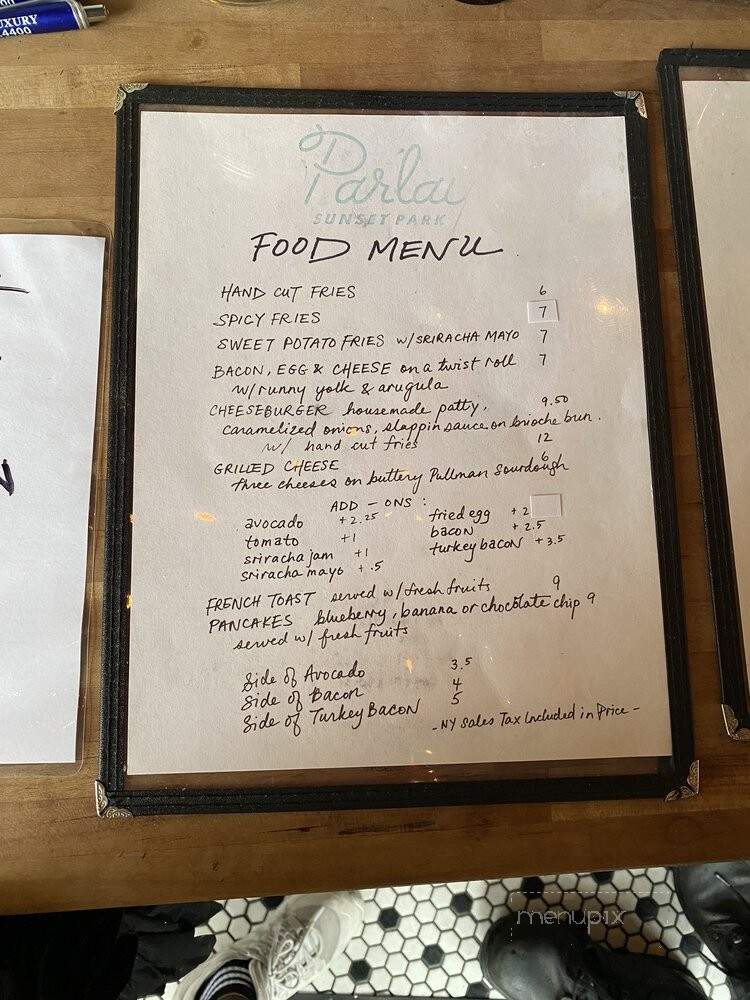 UXURY
4400
Parlay
SUNSET PARK
FOOD MENU
HAND CUT FRIES 6
SPICY FRIES 7
SWEET POTATO FRIES w/SRIRACHA MAYO 7
BACON, EGG & CHEESE on a twist roll 7
w/runny yolk & arugula
CHEESEBURGER housemade patty, 9.50
caramelized onions, slappin sauce on brioche bun.
w/ hand cut fries 12
GRILLED CHEESE 6
three cheeses on buttery Pullman Sourdough
ADD - ONS :
avocado +2.25 fried egg +2
tomato +1 bacon +2.5
sriracha jam +1 turkey bacon +3.5
sriracha mayo +.5
FRENCH TOAST served w/fresh fruits 9
PANCAKES blueberry, banana or chocolate chip 9
served w/ fresh fruits
Side of Avocado 3.5
Side of Bacon 4
Side of Turkey BACON 5
-NY Sales Tax Included in Price-
menupix